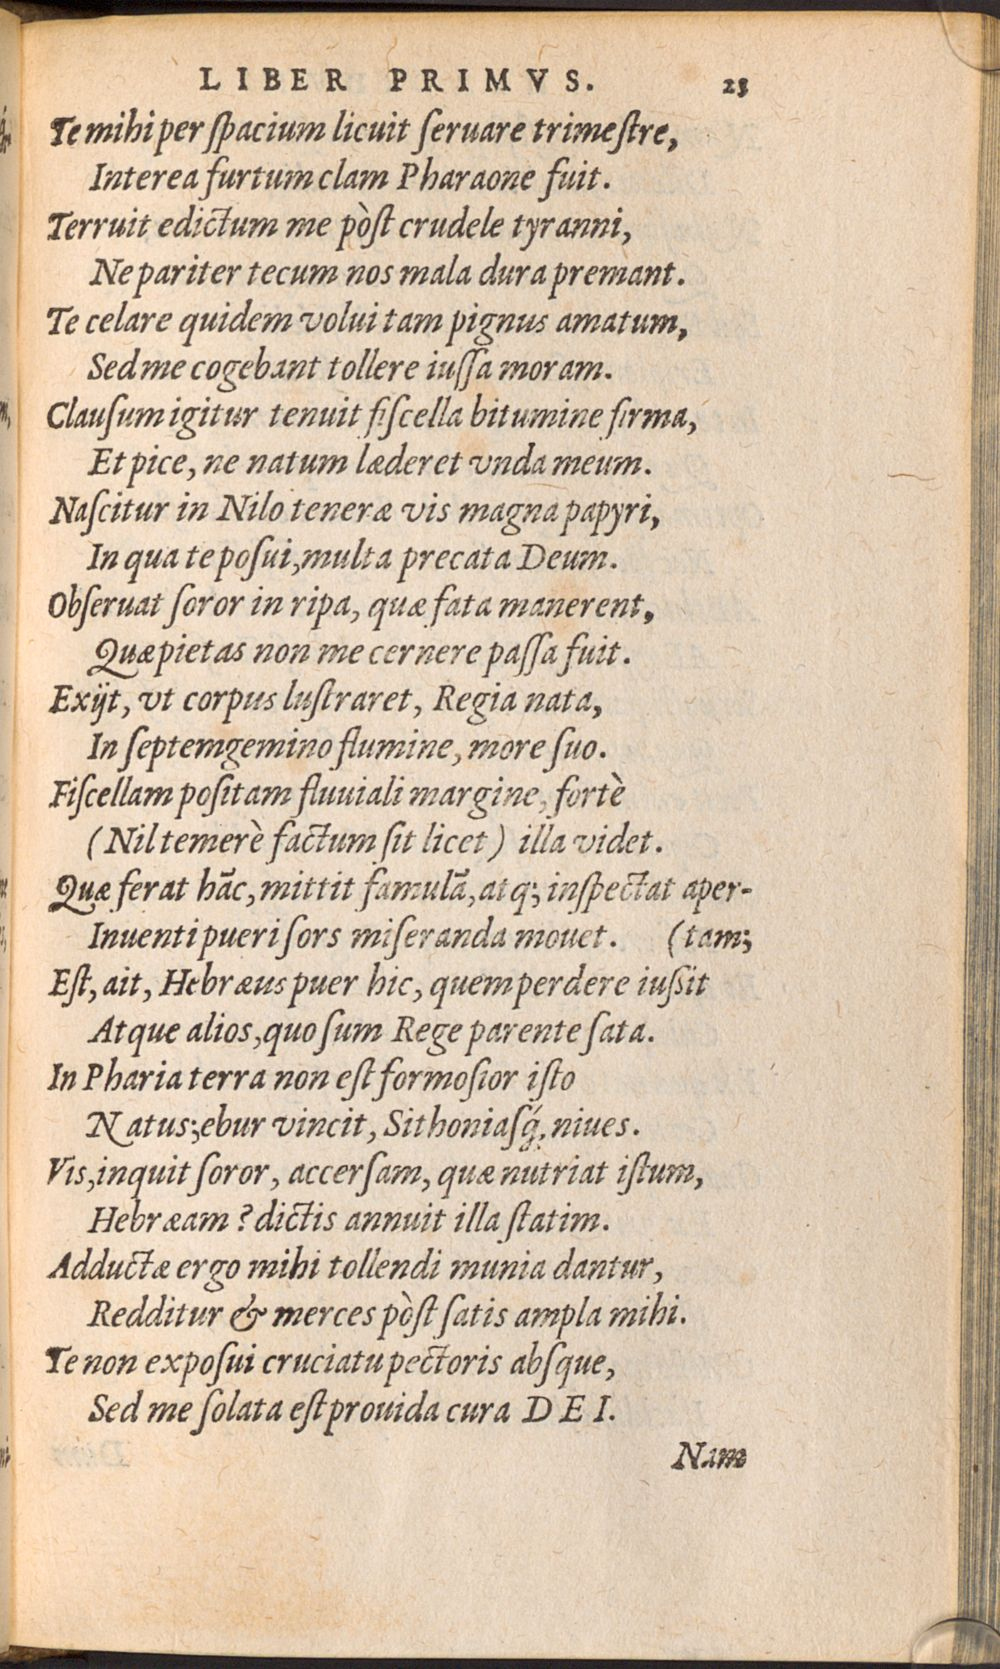 LIBER PRIMVS. 23
Te mihi per ſpacium licuit ſeruare trimeſtre,
Interea furtum clam Pharaone fuit.
Terruit edictum me pòſt crudele tyranni,
Ne pariter tecum nos mala dura premant.
Te celare quidem volui tam pignus amatum,
Sed me cogebant tollere iuſſa moram.
Clauſum igitur tenuit fiſcella bitumine firma,
Et pice, ne natum læderet vnda meum.
Naſcitur in Nilo teneræ vis magna papyri,
In qua te poſui, multa precata Deum.
Obſeruat ſoror in ripa, quæ fata manerent,
Quæ pietas non me cernere paſſa fuit.
Exijt, vt corpus luſtraret, Regia nata,
In ſeptemgemino flumine, more ſuo.
Fiſcellam poſitam fluuiali margine, fortè
(Nil temerè factum ſit licet) illa videt.
Quæ ferat hāc, mittit famulā, atq;, inſpectat aper-
Inuenti pueri ſors miſeranda mouet. (tam;
Eſt, ait, Hebræus puer hic, quem perdere iuſsit
Atque alios, quo ſum Rege parente ſata.
In Pharia terra non eſt formoſior iſto
Natus; ebur vincit, Sithoniaſq́; niues.
Vis, inquit ſoror, accerſam, quæ nutriat iſtum,
Hebræam? dictis annuit illa ſtatim.
Adductæ ergo mihi tollendi munia dantur,
Redditur & merces pòſt ſatis ampla mihi.
Te non expoſui cruciatu pectoris abſque,
Sed me ſolata eſt prouida cura DEI.
Nam